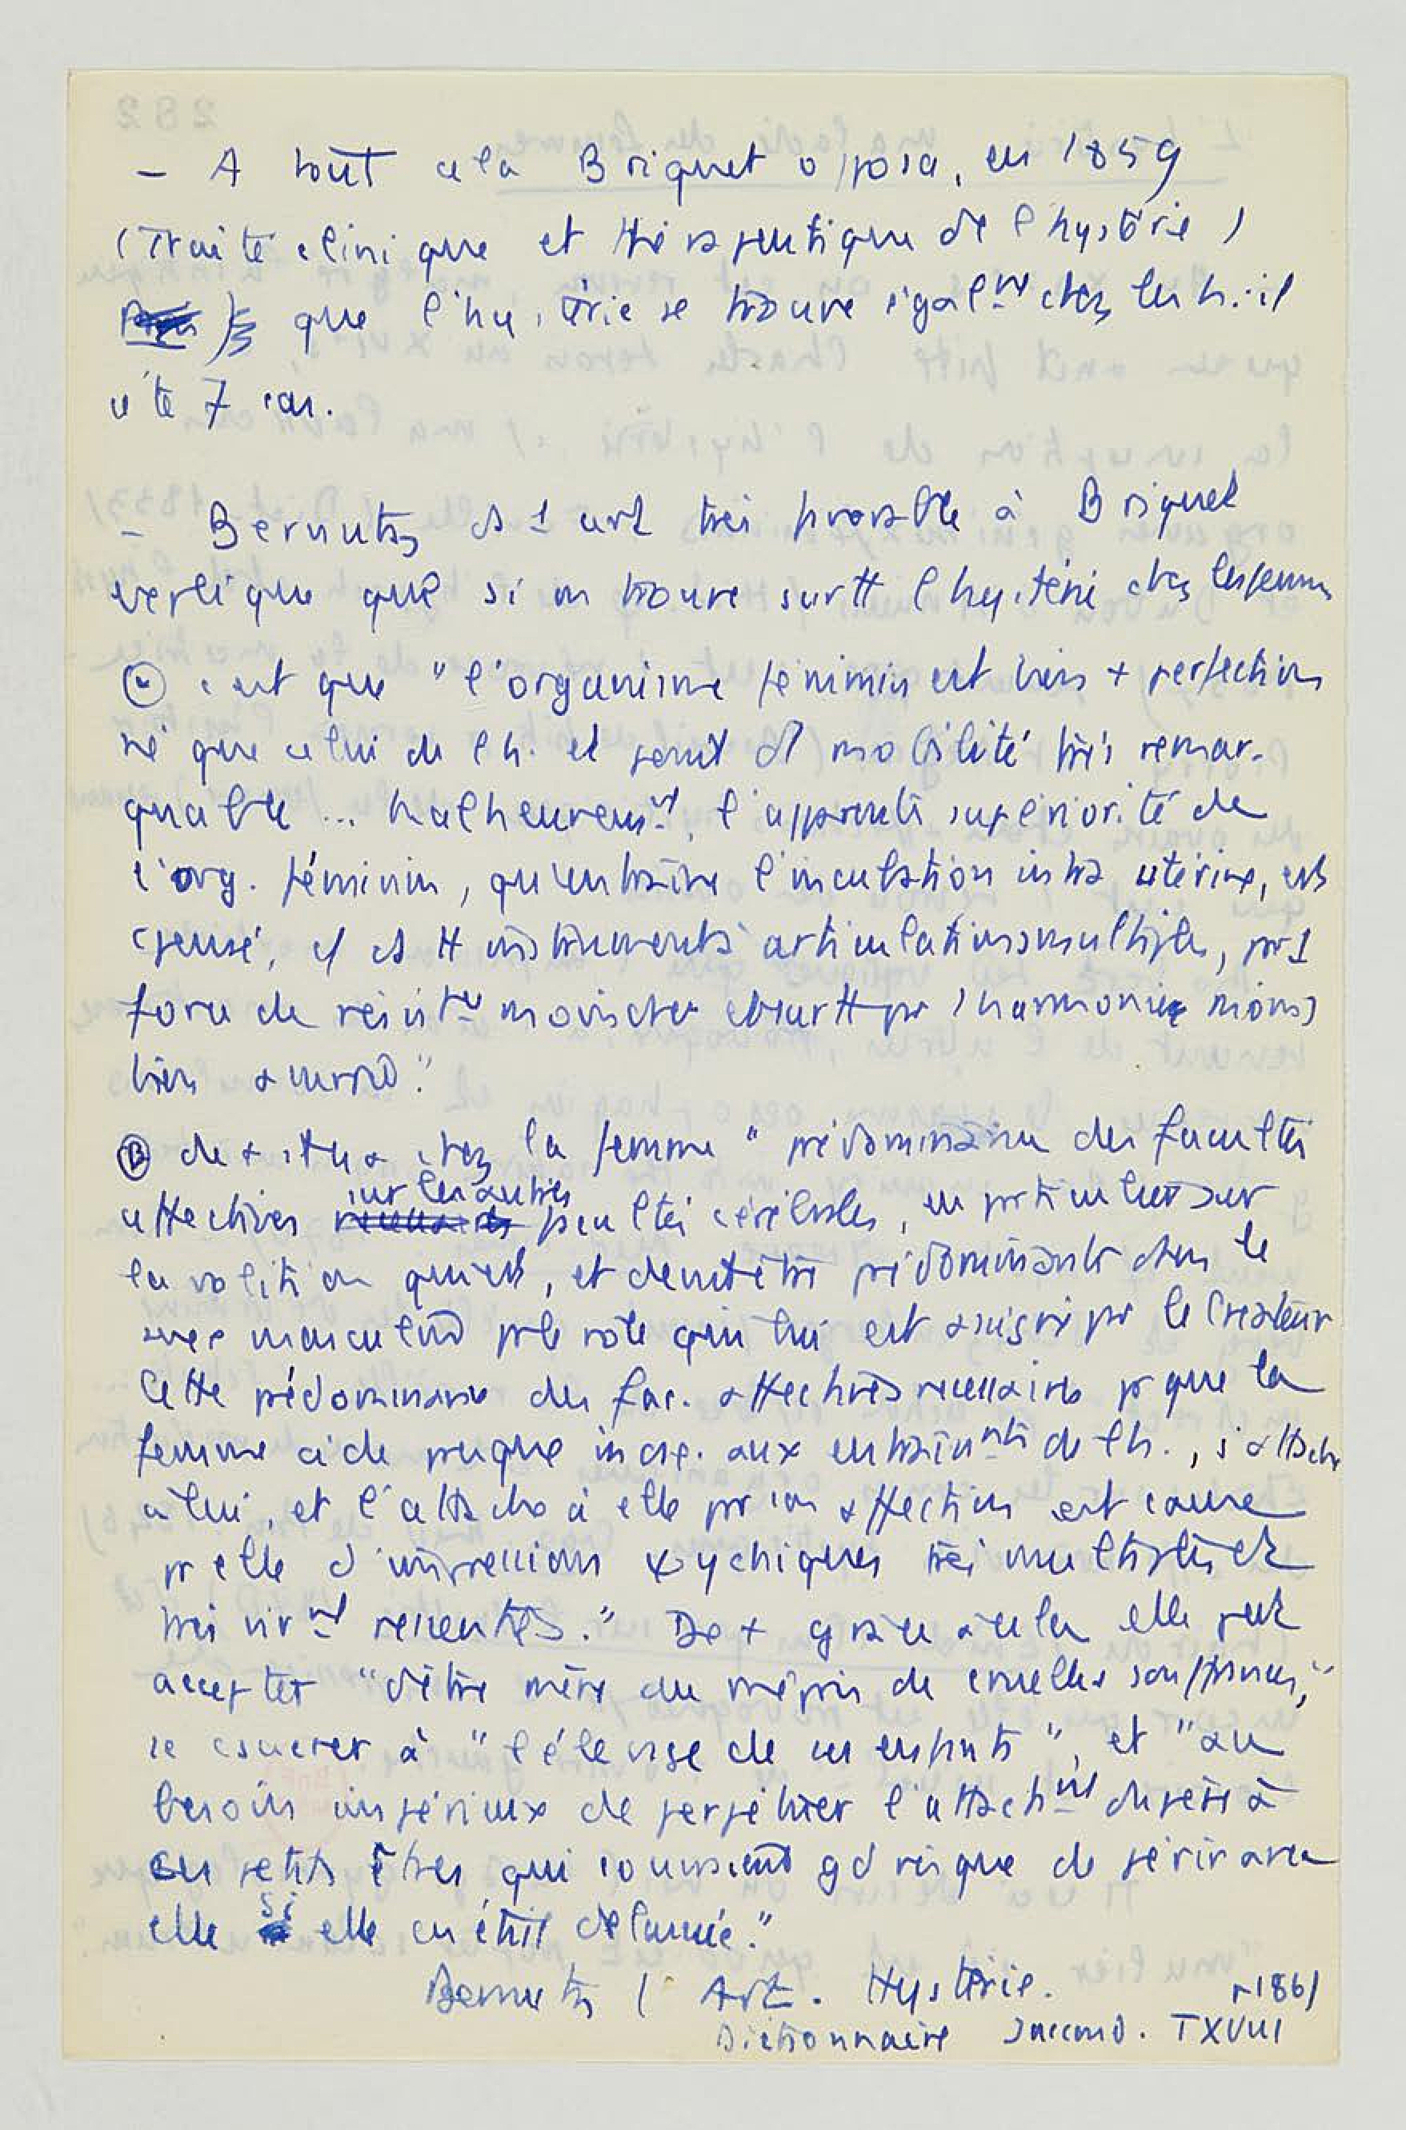 – A tout cela Briquet opposa, en 1859
(Traité clinique et thérapeutique de l'hystérie)
que l'hystérie se trouve égalnt chez les h. : il
cite 7 cas.
– Bernutz, ds 1 art très favorable à Briquet
explique que si on trouve surtt l'hystérie chez les femmes
(a) c'est que "l'organisme féminin est bien + perfection
né que celui de l'h. et jouit d'1 mobilité très remar-
quable ... Malheureusnt, l'apparente supériorité de
l'org. féminin, qu'entraîne l'incubation intra utérine, est
c/pensé, c/ ds tt instruments à articulations multiples, pr 1
force de résistce moindre et surtt pr 1 harmonie moins
bien assurée."
(B) de + chez la femme "prédominance des facultés
affectives sur les autres facultés cérébrales, en particulier sur
la volition qui est, et devait être prédominante chez le
sexe masculin pr le rôle qui lui est assigné pr le Créateur
Cette prédominance des fac. affectives nécessaires pr que la
femme cède presque incse. aux entraînnts de l'h., s'attache
à lui, et l'attache à elle pr son affection est cause
pr elle d'impressions psychiques très multipliées et
très vivnt ressenties." De + grâce à cela elle peut
accepter "d'être mère au mépris de cruelles souffrances,"
se consacrer à "l'élevage de ses enfants", et "au
besoin impérieux de perpétuer l'attachnt du père à
ces petits êtres, qui couraient gd risque de périr avec
elle si elle en était délaissée."
Bernutz / Art. Hystérie.
Dictionnaire Jaccoud. TXVIII